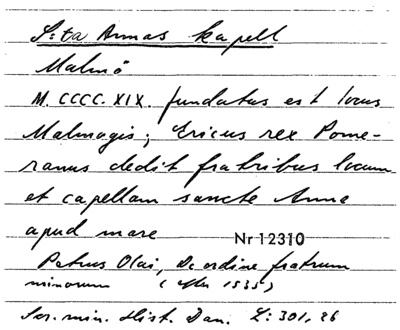 S:ta Annas kapell
Malmö
M.CCCC.XIX. fundatus est locus
Malmogis; Ericus rex Pome-
ranus dedit fratribus locum
et capellam sancte Anne
apud mare
Nr 12310
Petrus Olai, De ordine fratrum
minorum (efter 1535)
Scr. min. Hist. Dan. 2:301, 26